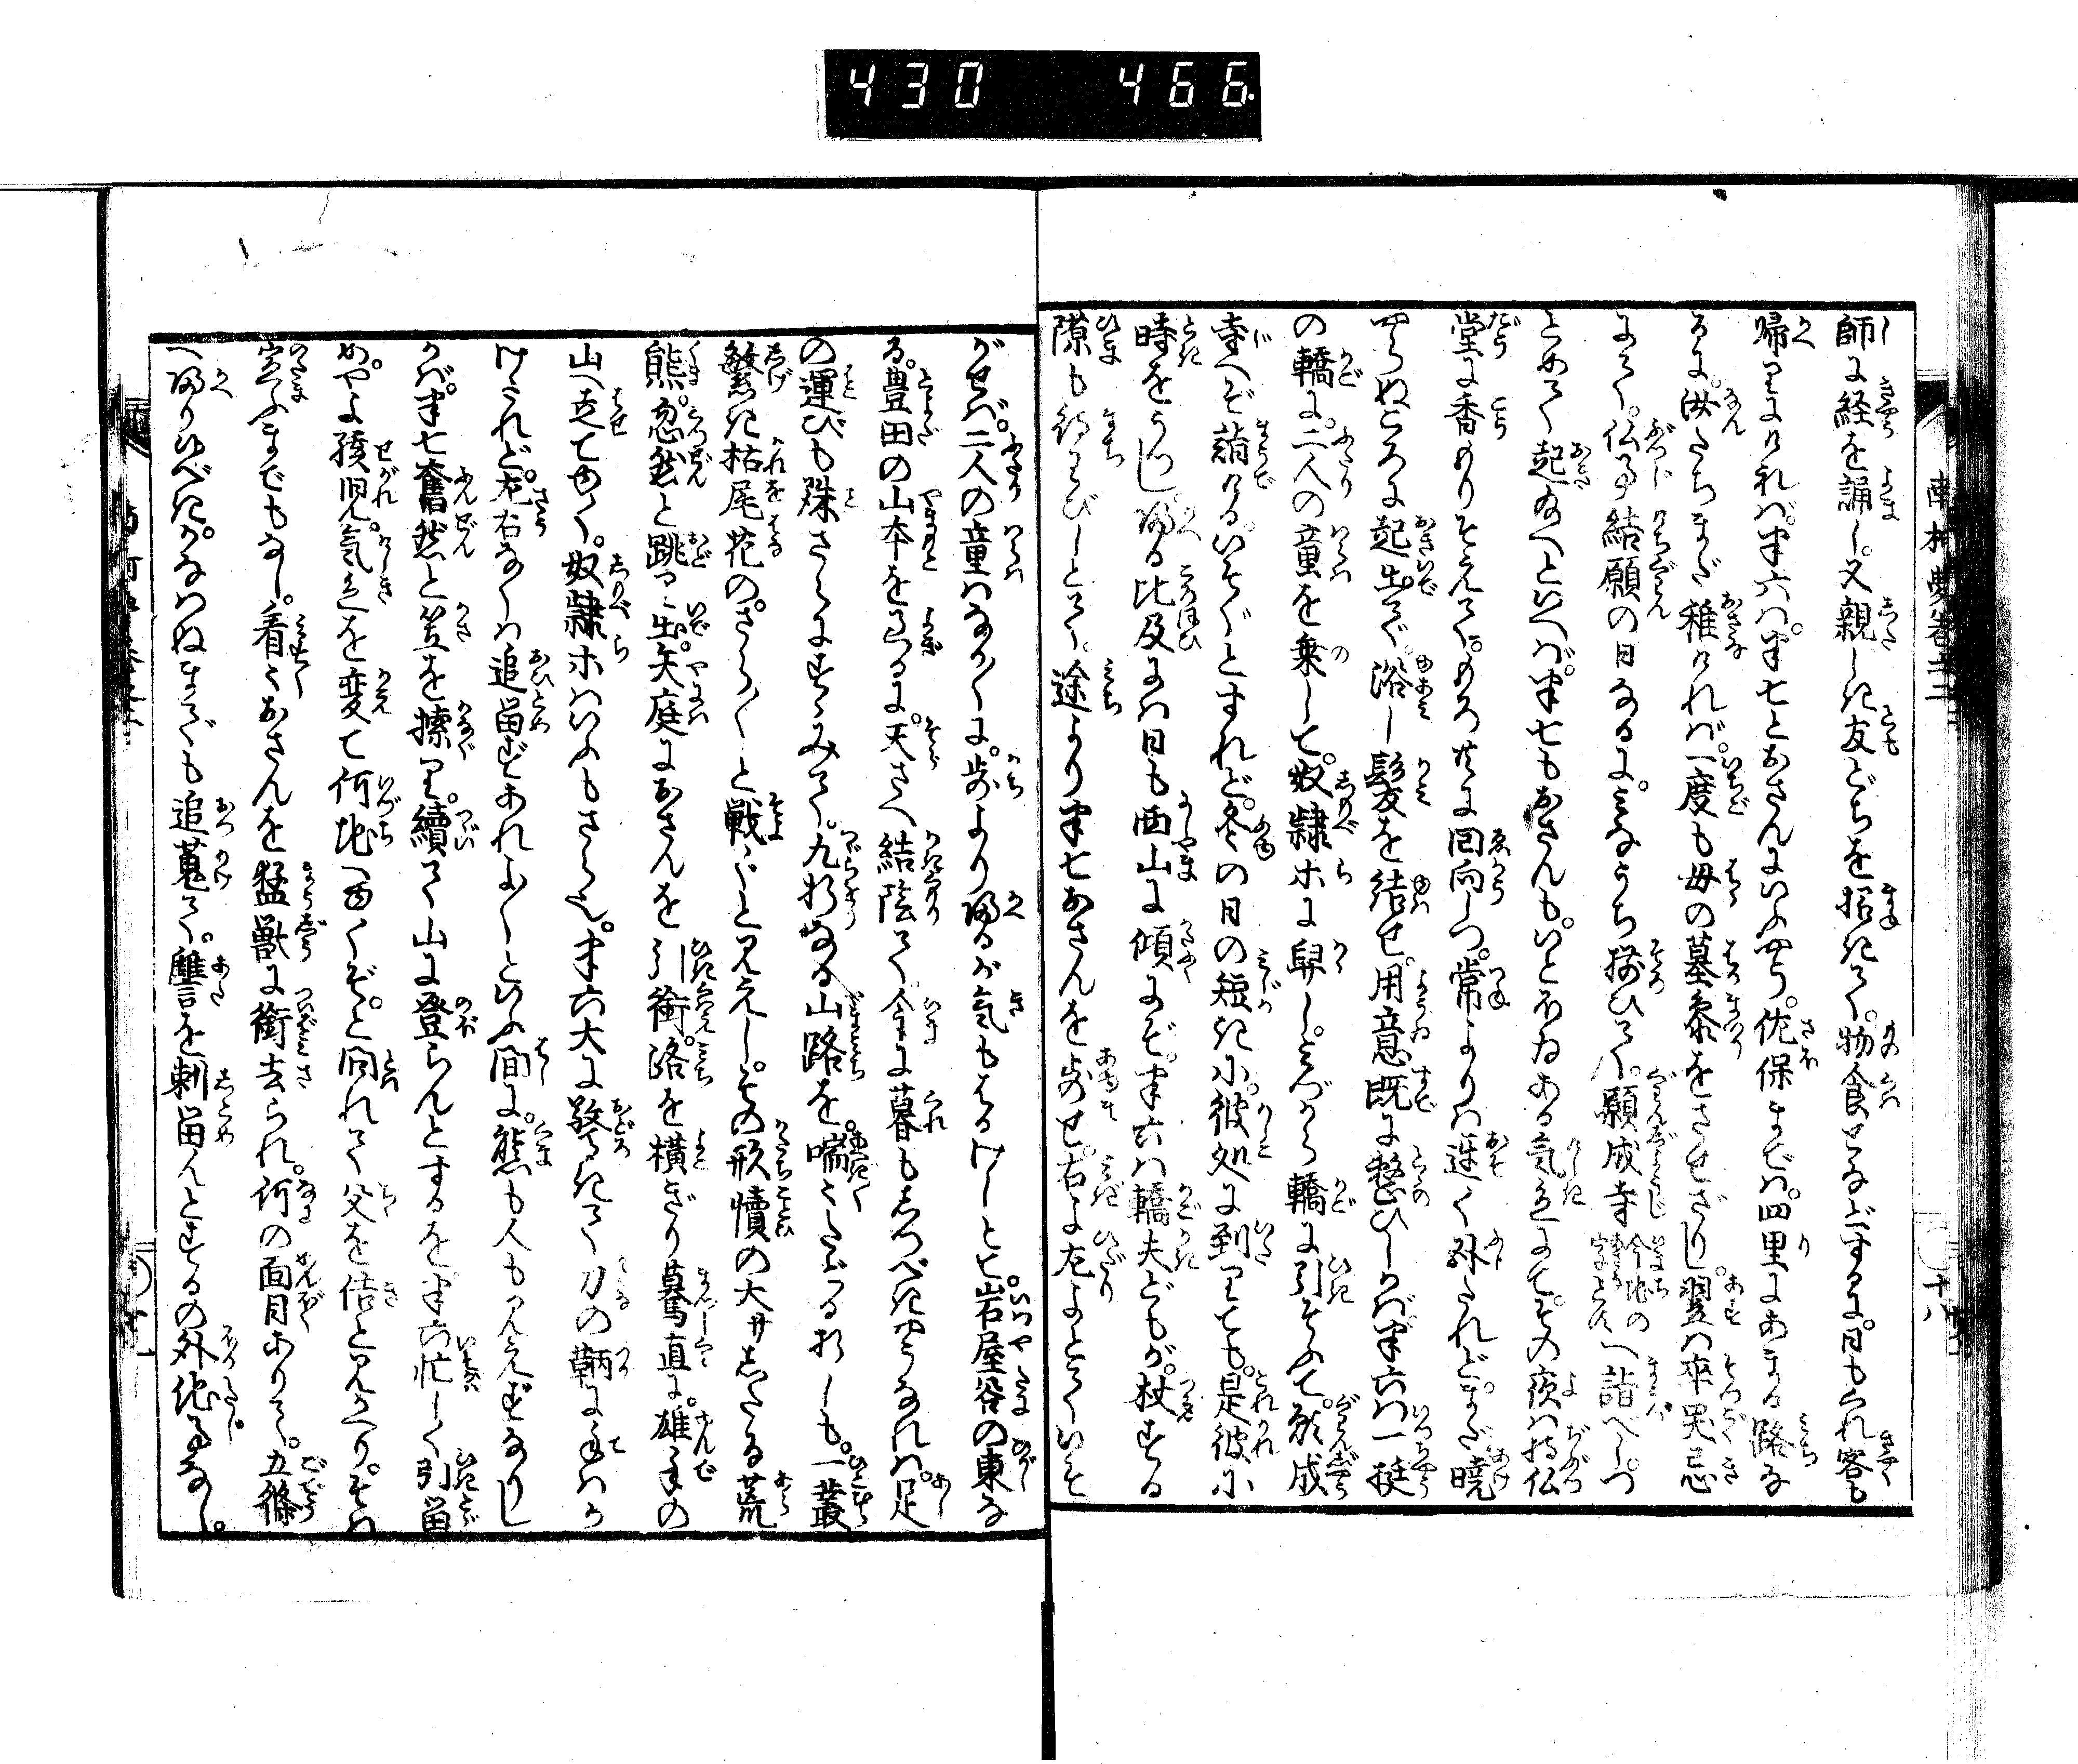 430 466
師に経を誦し。又親しき友どちを招きて。物食せなどするに。日もくれ客も
帰りにければ。半六は。半七とおさんにいふやう。佐保までは。四里にあまる路な
るに。汝たちまだ稚ければ。一度も母の墓参をさせざりし。翌は卒哭忌
にて。仏事結願の日なるに。みなうち揃ひて。願成寺へ詣べし。つ
とめて起給へといへば。半七もおさんも。いとうれしげなる気色にて。その夜は持仏
堂に香もりそえて。もろ共に回向しつ。常よりは遅く臥たれど。まだ暁
やらぬころに起出て。浴し髪を結せ。用意既に整ひしかば。半六は一挺
の轎に。二人の童を乗して。奴隷ホに舁し。みづから轎に引そふて。願成
寺へぞ詣ける。いそぐとすれど。冬の日の短きに。彼処に到りても。是彼に
時をうつし。帰る比及には日も西山に傾にぞ。半六は轎夫どもが。杖する
隙も待わびしとて。途より半七おさんを歩せ。右よ左よとていそ
がせば。二人の童はなか〳〵に。歩より帰るが気もはるけしとて。岩屋谷の東な
る。豊田の山本を過るに。天さへ結陰て今に暮もしつべきやうなれば。足
の運びも殊さらにすゝみて。九折なる山路を。喘〻たどる折しも。一叢
繁き枯尾花の。さら〳〵と戦ぐと見えし。その形犢の大サしたる荒
熊。忽然と跳り出。矢庭におさんを引銜。路を横ぎり驀直に。雄手の
山へ走てゆく。奴隷ホはいふもさら也。半六大に驚きて刀の鞆に手はか
けたれど。左右なくは追留ず。あれよ〳〵といふ間に。熊も人も見えずなりし
かば。半七奮然と笠を搡り。續て山に登らんとするを半六忙しく引留
め。やよ孩児。気色を変て何地へゆくぞ。と問れて父を佶と見かへり。そは
宣ふまでもなし。看〻おさんを猛獣に銜去られ。何の面目ありて。五條
へ帰り候べき。かなはぬまでも追蒐て。讐を刺留んとするの外他事なし。